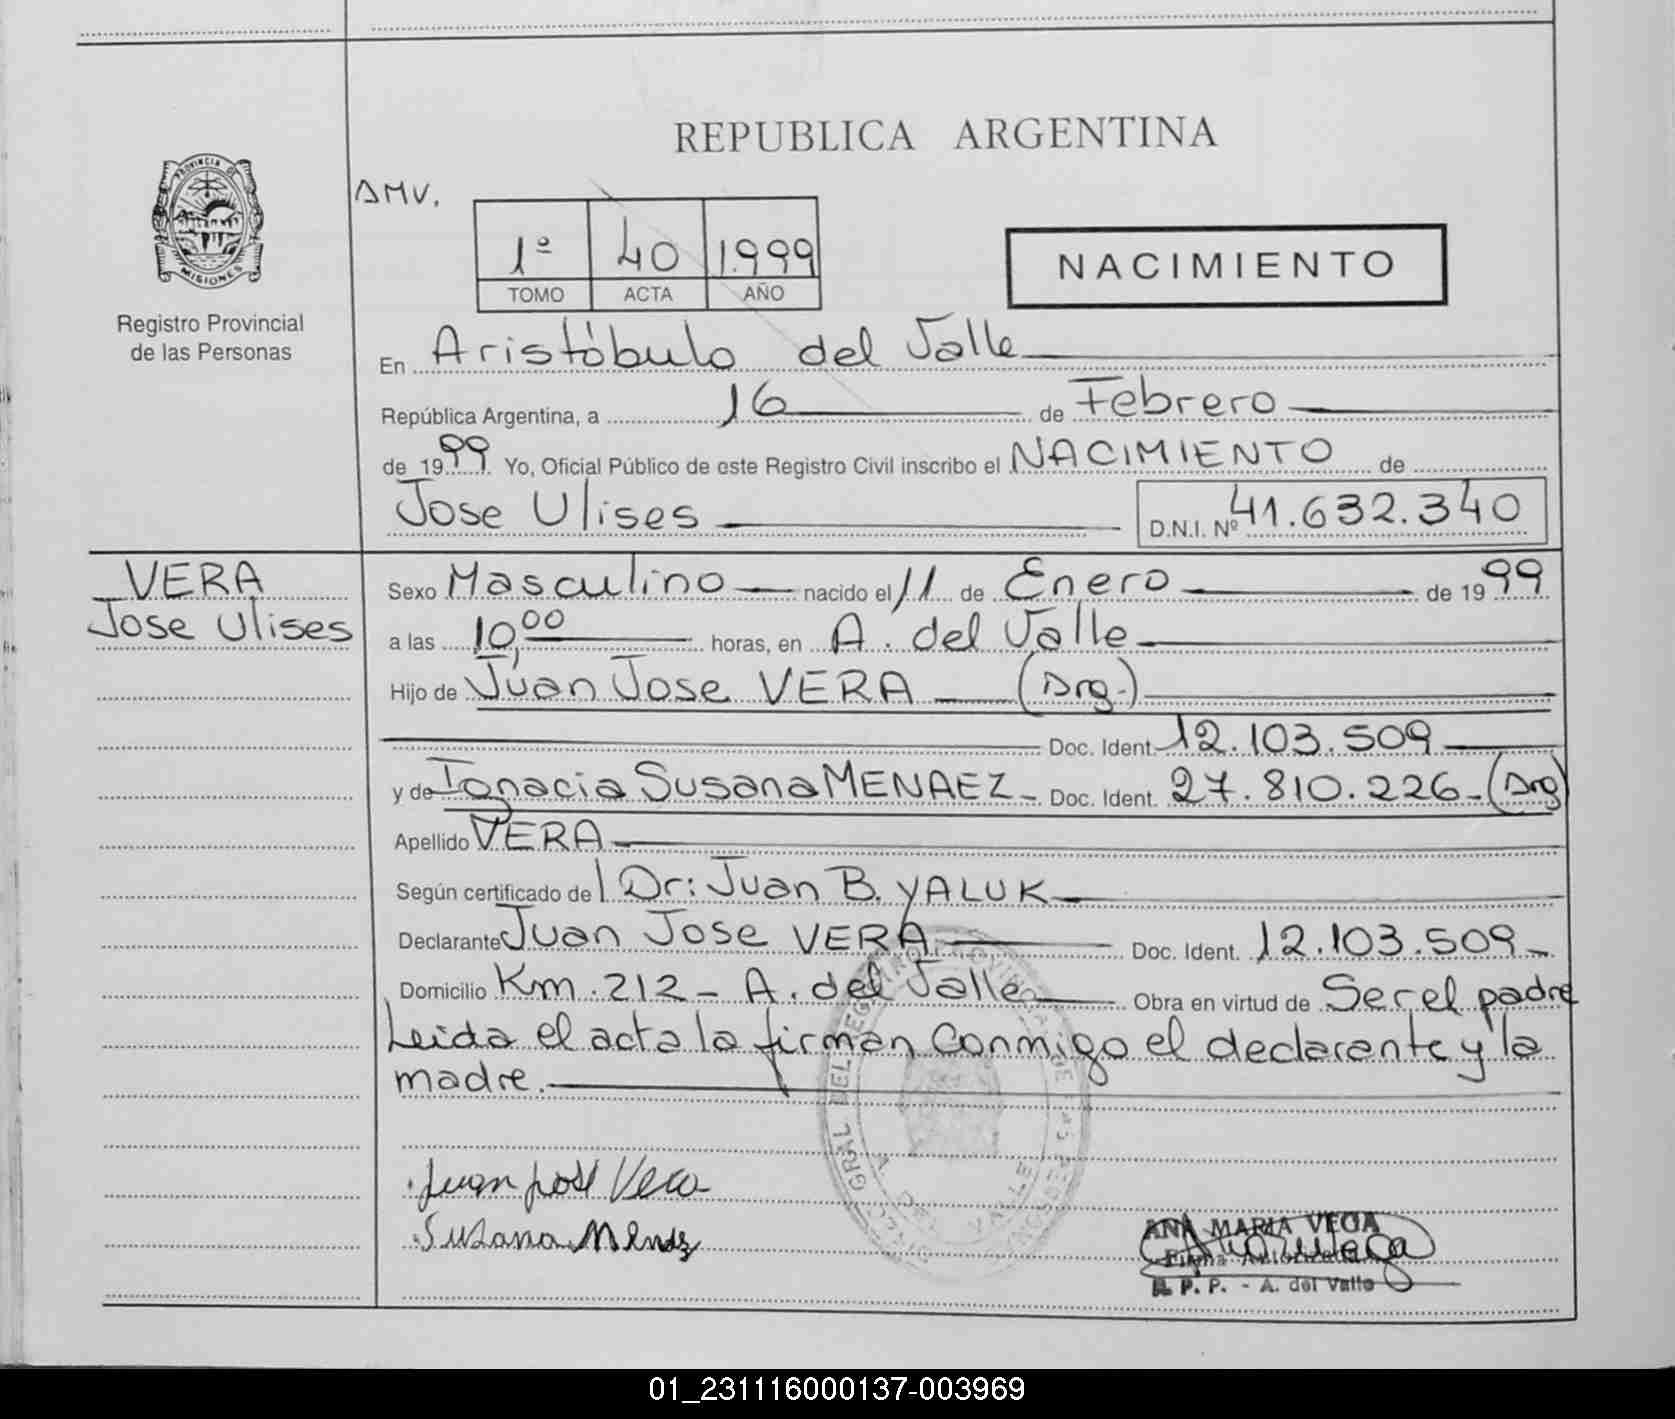 REPUBLICA ARGENTINA
PROVINCIA DE
MISIONES
Registro Provincial
de las Personas
AMV.
1º 40 1.999
TOMO ACTA AÑO
NACIMIENTO
En Aristóbulo del Valle
República Argentina, a 16 de Febrero
de 1999 Yo, Oficial Público de este Registro Civil inscribo el NACIMIENTO de
Jose Ulises D.N.I. Nº 41.632.340
VERA
Jose Ulises
Sexo Masculino nacido el 11 de Enero de 1999
a las 10,00 horas, en A. del Valle
Hijo de Juan Jose VERA (Arg.)
Doc. Ident. 12.103.509
y de Ignacia Susana MENAEZ Doc. Ident. 27.810.226 (Arg)
Apellido VERA
Según certificado de Dr: Juan B. YALUK
Declarante Juan Jose VERA Doc. Ident. 12.103.509
Domicilio Km. 212 - A. del Valle Obra en virtud de Ser el padre
Leida el acta la firman conmigo el declarante y la
madre.
Juan José Vera
Susana
ANA MARIA VEGA
Firma Autorizada
R. P. P. - A. del Valle
01_231116000137-003969